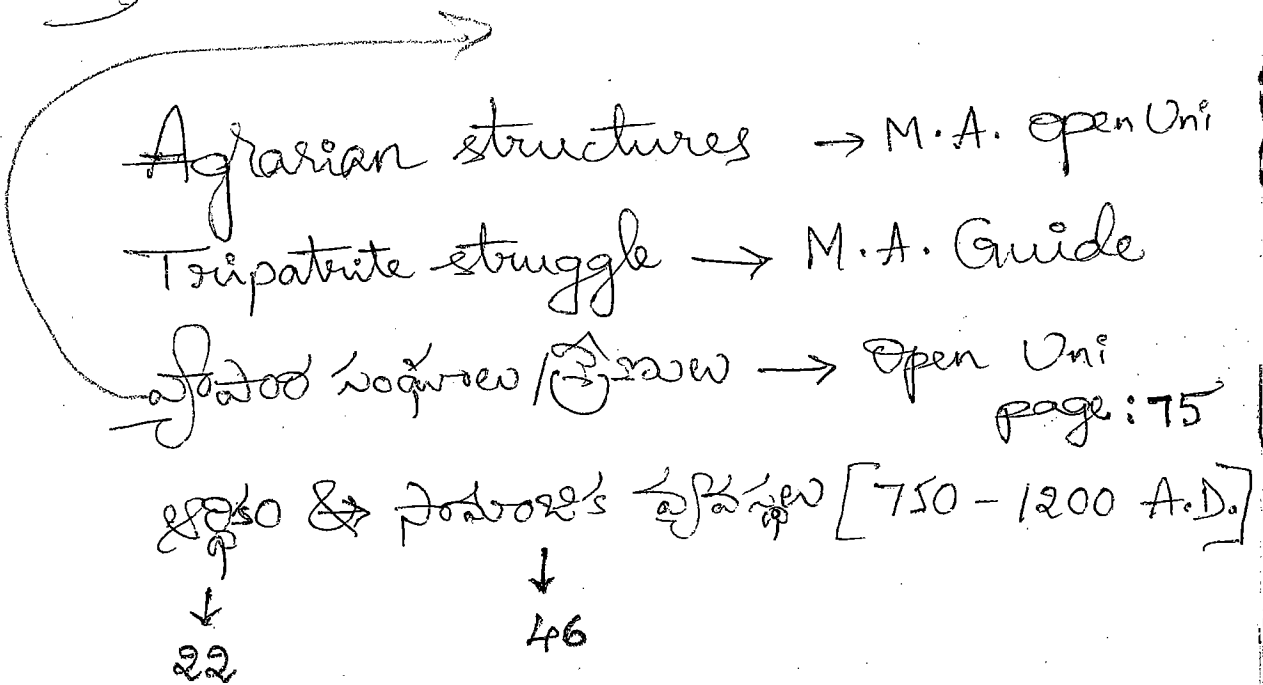 Agrarian structures → M.A. open Uni
Tripatrite struggle → M.A. Guide
వ్యాపార సంఘాలు / శ్రేణులు → Open Uni
page: 75
ఆర్థికం & సామాజిక వ్యవస్థలు [750 - 1200 A.D.]
↓ ↓
22 46